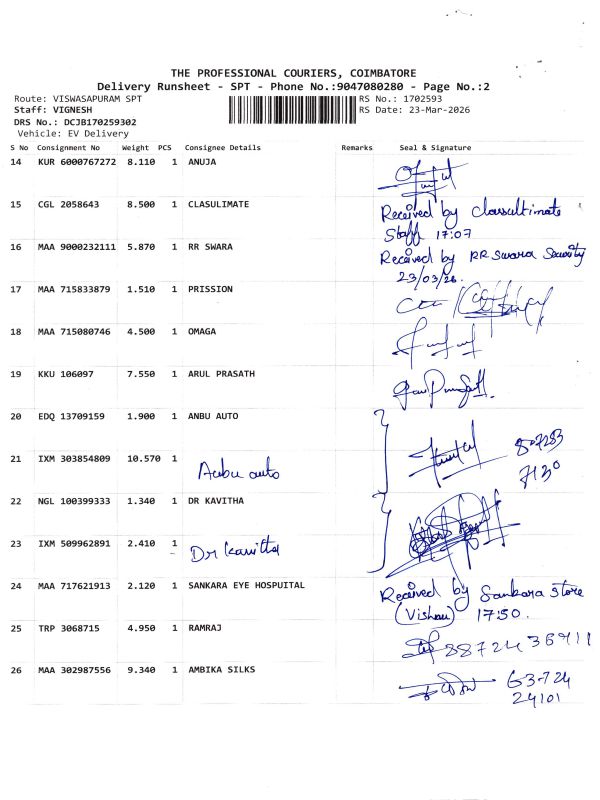 THE PROFESSIONAL COURIERS, COIMBATORE
Delivery Runsheet - SPT - Phone No.:9047080280 - Page No.:2
Route: VISWASAPURAM SPT
RS No.: 1702593
Staff: VIGNESH
RS Date: 23-Mar-2026
DRS No.: DCJB170259302
Vehicle: EV Delivery
S No Consignment No Weight PCS Consignee Details Remarks Seal & Signature
14 KUR 6000767272 8.110 1 ANUJA
15 CGL 2058643 8.500 1 CLASULIMATE Received by classultimate
Staff 17:07
16 MAA 9000232111 5.870 1 RR SWARA Received by RR Swara Security
23/03/26.
17 MAA 715833879 1.510 1 PRISSION
18 MAA 715080746 4.500 1 OMAGA
19 KKU 106097 7.550 1 ARUL PRASATH
20 EDQ 13709159 1.900 1 ANBU AUTO
21 IXM 303854809 10.570 1 Anbu auto
22 NGL 100399333 1.340 1 DR KAVITHA
23 IXM 509962891 2.410 1 Dr kavitha
24 MAA 717621913 2.120 1 SANKARA EYE HOSPUITAL Received by Sankara store
(Vishnu) 17:50.
25 TRP 3068715 4.950 1 RAMRAJ
26 MAA 302987556 9.340 1 AMBIKA SILKS 63-724
24101